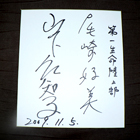 第一生命陸上部
尾崎好美
山下佐知子
2009.11.5.